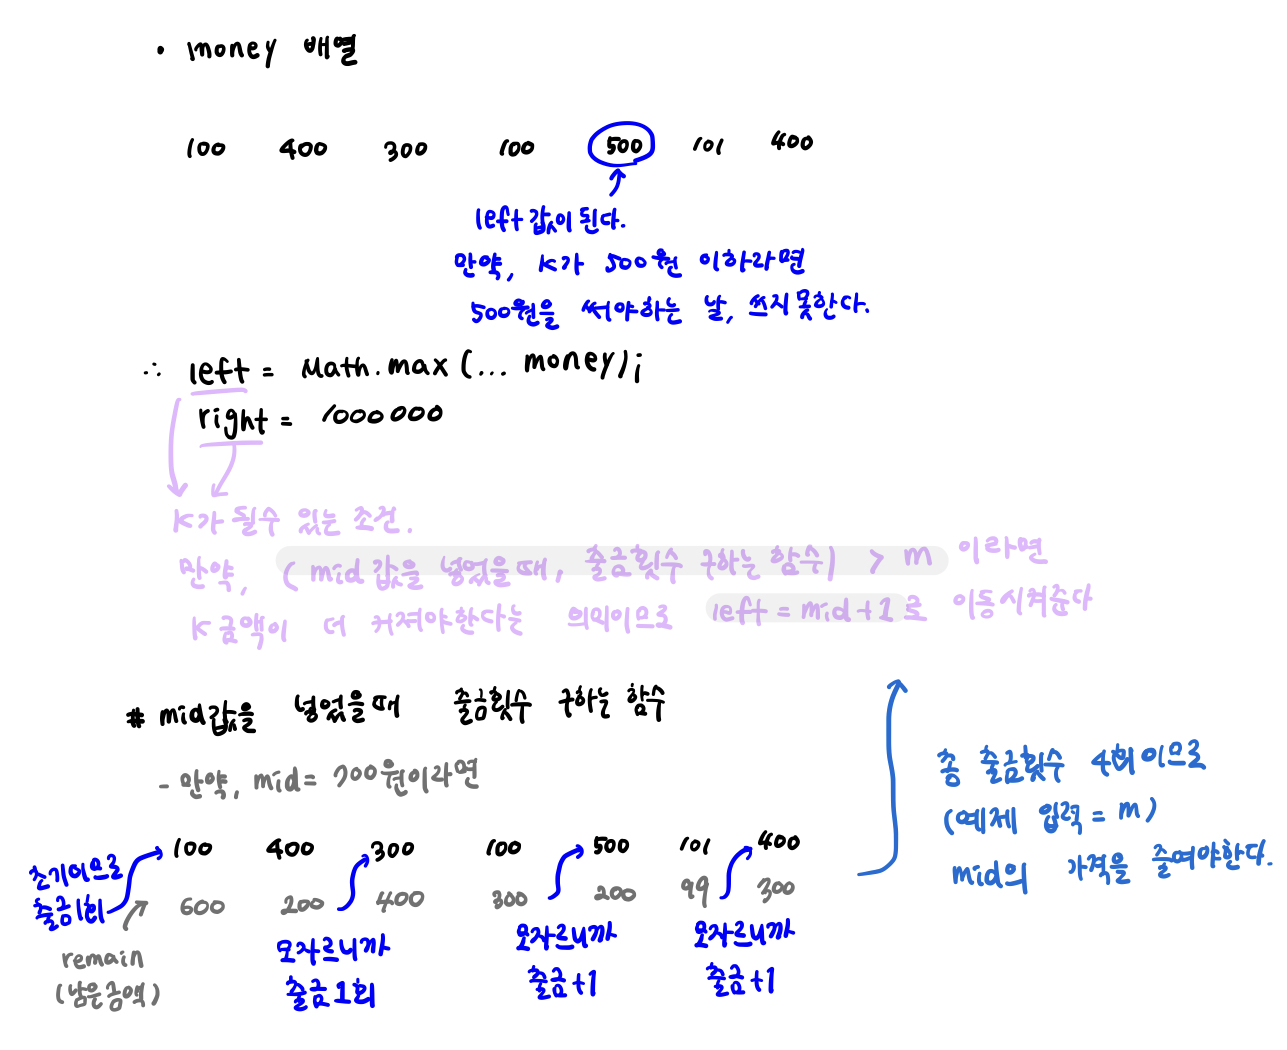 • money 배열
100 400 300 100 500 101 400
left 값이 된다.
만약, K가 500원 이하라면
500원을 써야하는 날, 쓰지못한다.
∴ left = Math.max (... money);
right = 1000000
K가 될수 있는 조건.
만약, (mid 값을 넣었을때, 출금횟수 구하는 함수) > m 이라면
K금액이 더 커져야한다는 의미이므로 left = mid+1로 이동시켜준다
# mid값을 넣었을때 출금횟수 구하는 함수
- 만약, mid = 700원이라면
100 400 300 100 500 101 400
초기이므로
출금1회
600 200 400 300 200 99 300
remain
(남은금액)
모자르니까
출금1회
모자르니까
출금+1
모자르니까
출금+1
총 출금횟수 4회이므로
(예제 입력 = m)
mid의 가격을 줄여야한다.